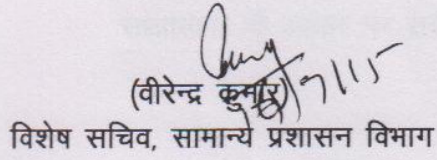 (वीरेन्द्र कुमार)
विशेष सचिव, सामान्य प्रशासन विभाग